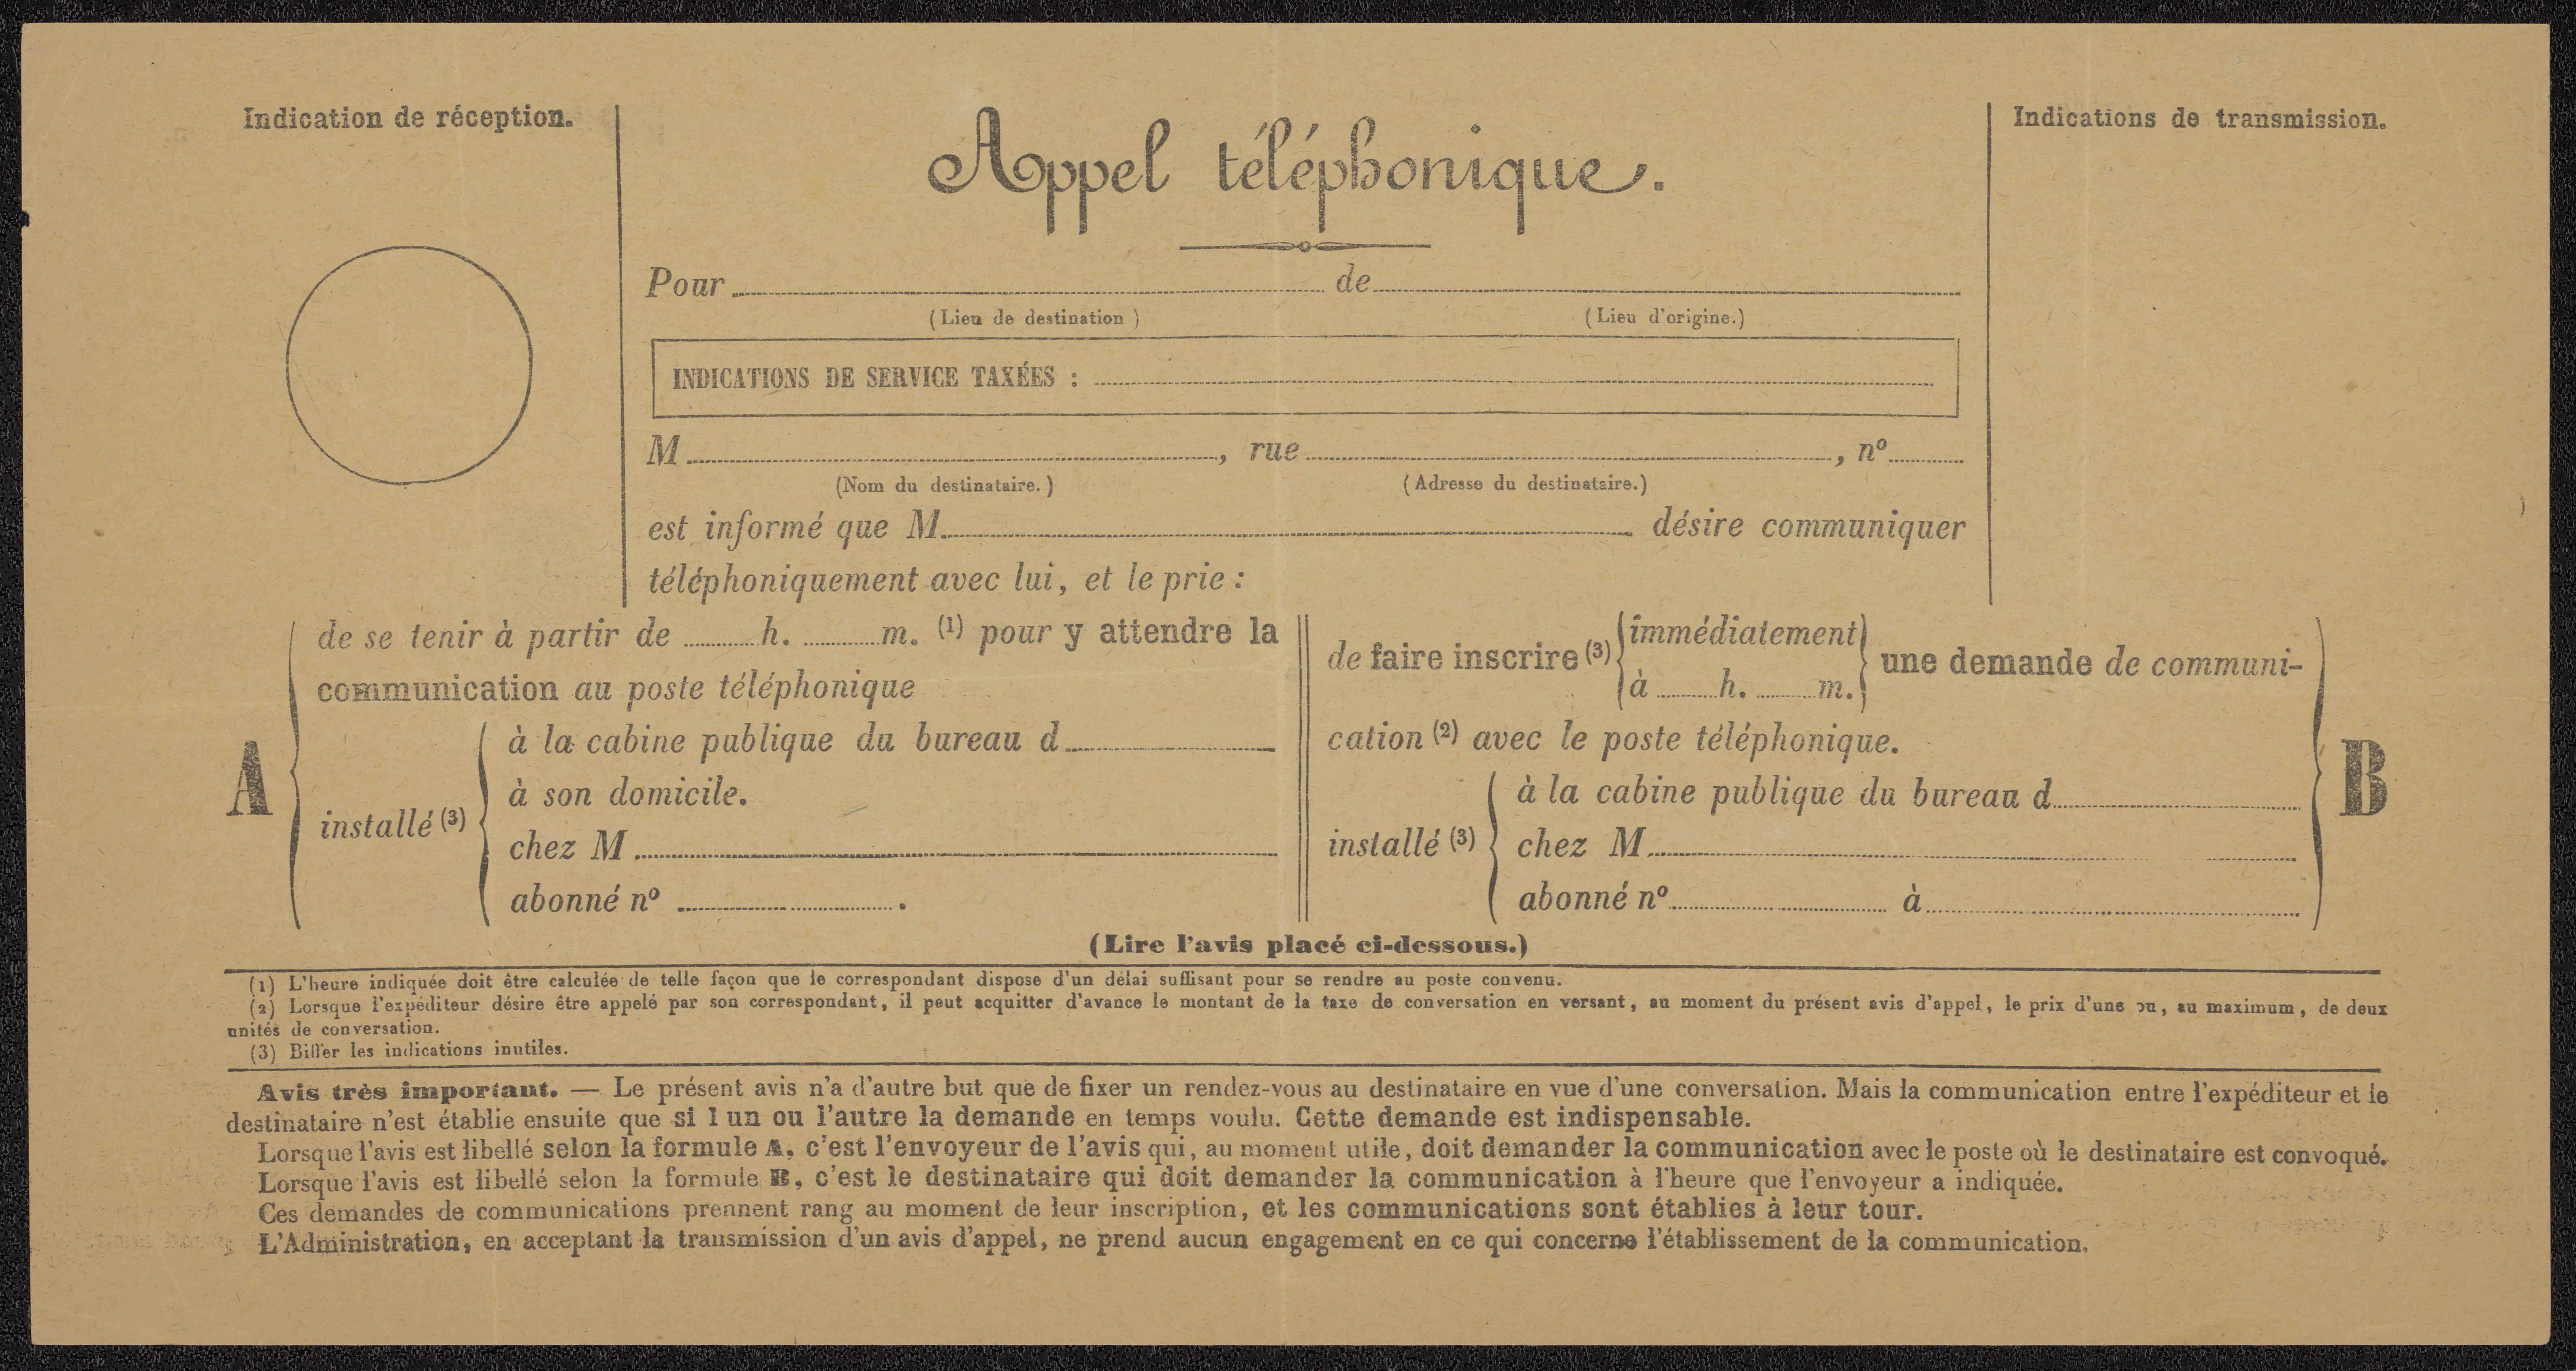 Indication de réception.
Appel téléphonique.
Indications de transmission.
Pour de
(Lieu de destination) (Lieu d'origine.)
INDICATIONS DE SERVICE TAXÉES :
M , rue , nº
(Nom du destinataire.) (Adresse du destinataire.)
est informé que M. désire communiquer
téléphoniquement avec lui, et le prie :
A
de se tenir à partir de h. m. (1) pour y attendre la
communication au poste téléphonique
installé (3)
à la cabine publique du bureau d
à son domicile.
chez M
abonné nº .
de faire inscrire (3) immédiatement
à h. m. une demande de communi-
cation (2) avec le poste téléphonique.
installé (3)
à la cabine publique du bureau d
chez M
abonné nº à
B
(Lire l'avis placé ci-dessous.)
(1) L'heure indiquée doit être calculée de telle façon que le correspondant dispose d'un délai suffisant pour se rendre au poste convenu.
(2) Lorsque l'expéditeur désire être appelé par son correspondant, il peut acquitter d'avance le montant de la taxe de conversation en versant, au moment du présent avis d'appel, le prix d'une ou, au maximum, de deux
unités de conversation.
(3) Biffer les indications inutiles.
Avis très important. — Le présent avis n'a d'autre but que de fixer un rendez-vous au destinataire en vue d'une conversation. Mais la communication entre l'expéditeur et le
destinataire n'est établie ensuite que si l un ou l'autre la demande en temps voulu. Cette demande est indispensable.
Lorsque l'avis est libellé selon la formule A, c'est l'envoyeur de l'avis qui, au moment utile, doit demander la communication avec le poste où le destinataire est convoqué.
Lorsque l'avis est libellé selon la formule B, c'est le destinataire qui doit demander la communication à l'heure que l'envoyeur a indiquée.
Ces demandes de communications prennent rang au moment de leur inscription, et les communications sont établies à leur tour.
L'Administration, en acceptant la transmission d'un avis d'appel, ne prend aucun engagement en ce qui concerne l'établissement de la communication.